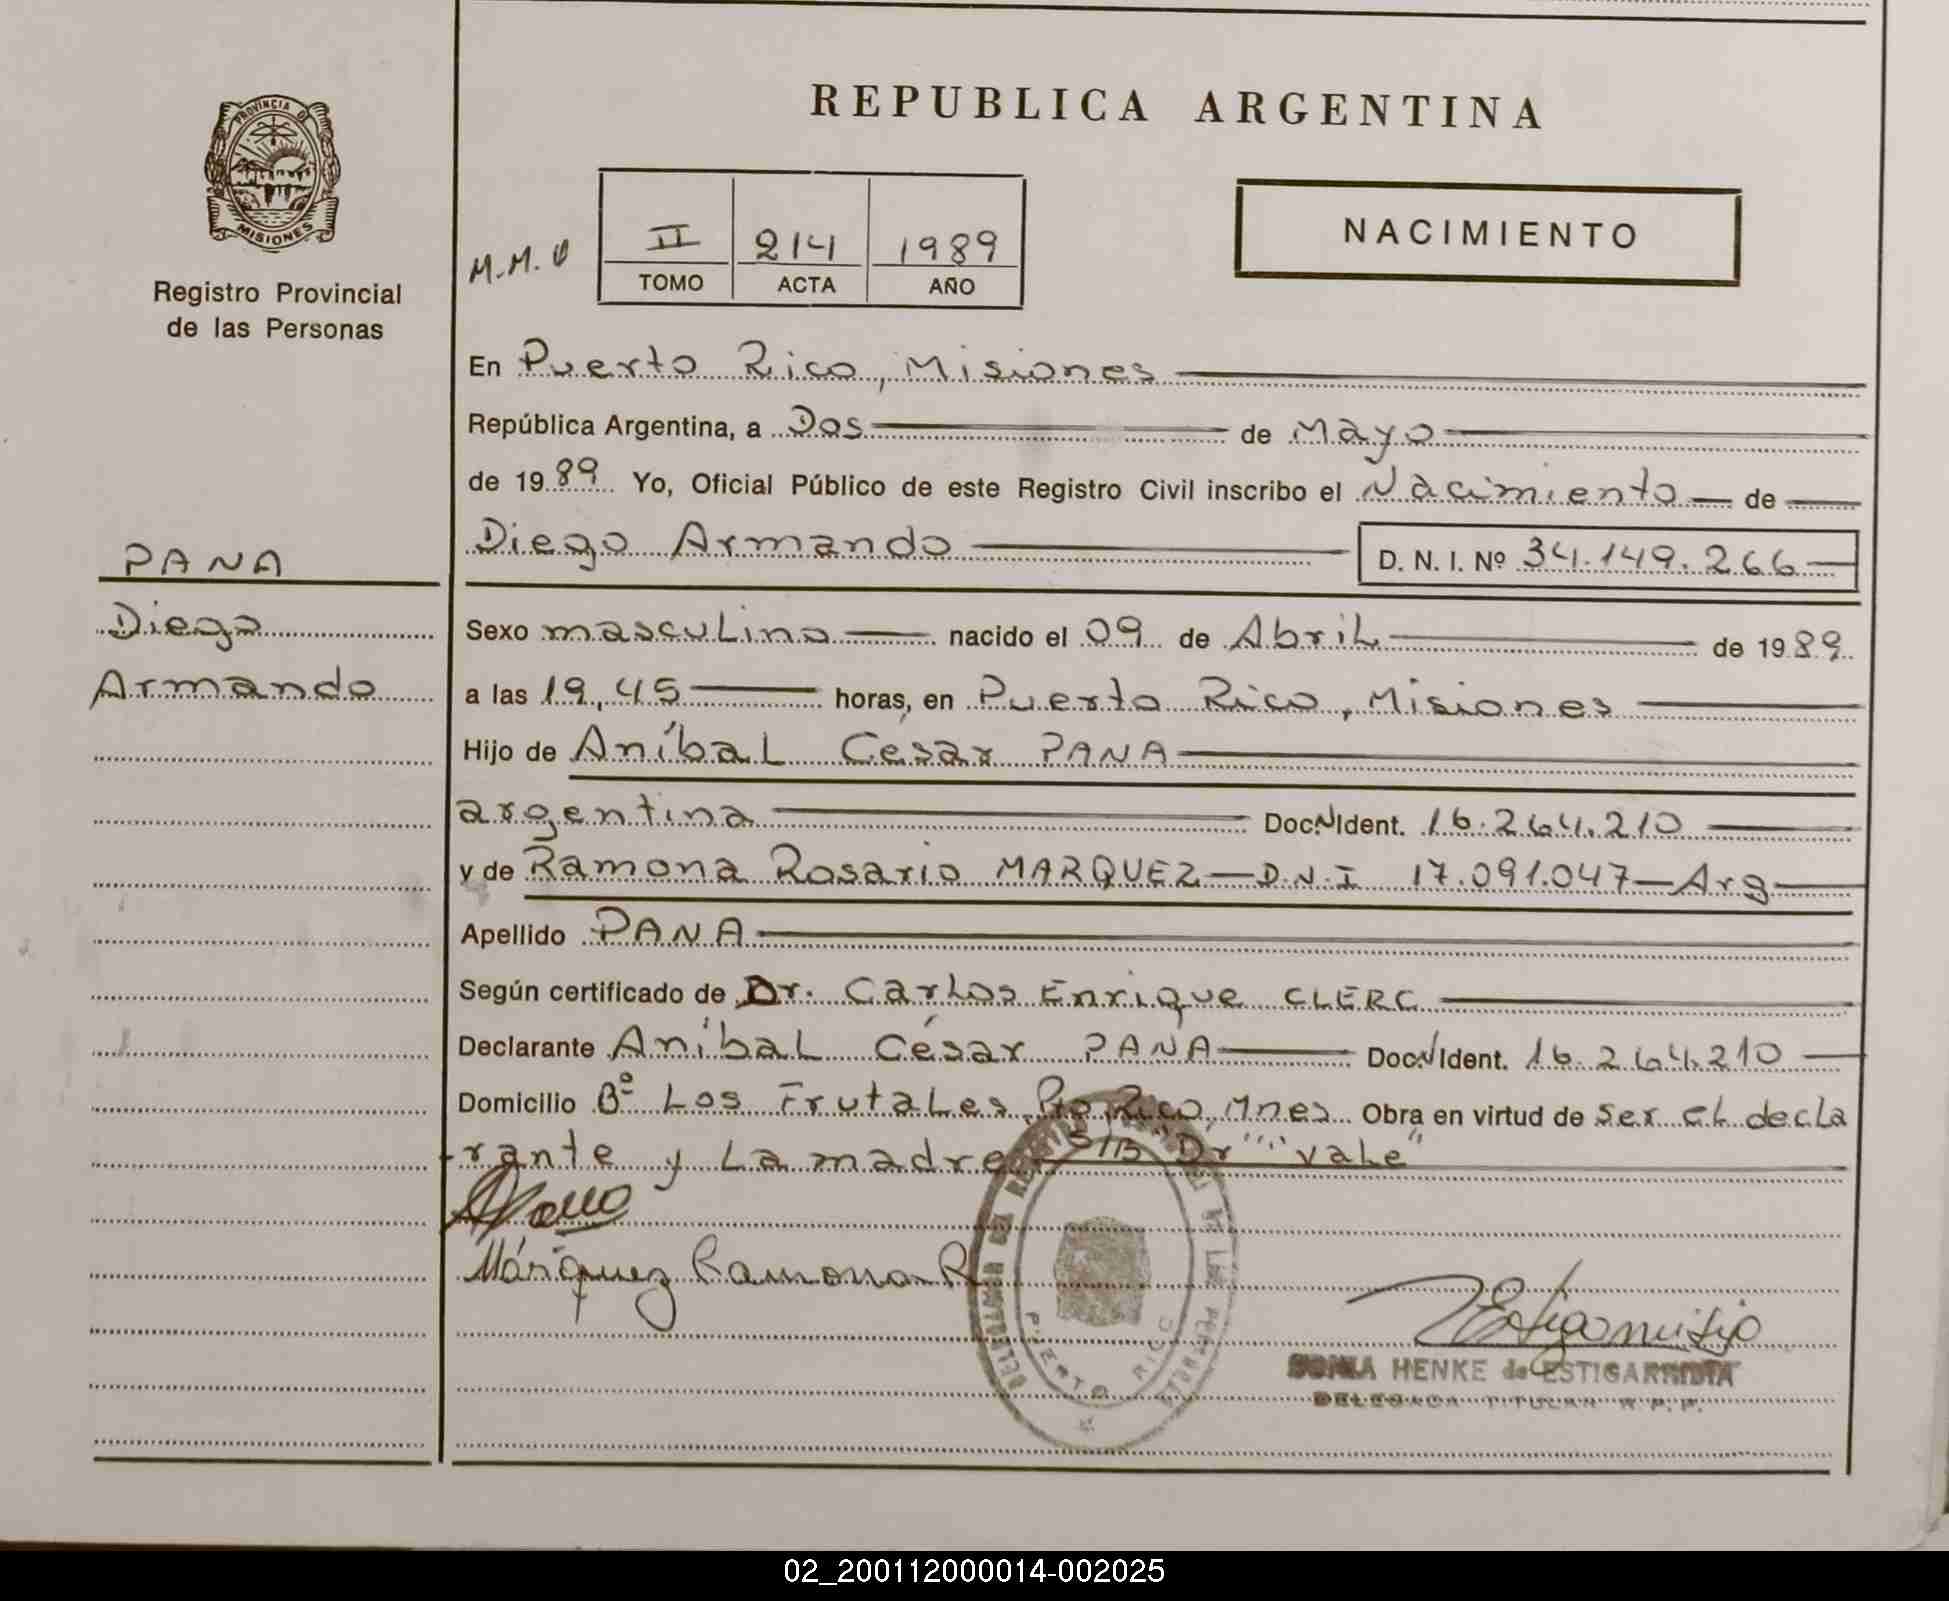 REPUBLICA ARGENTINA
PROVINCIA D
MISIONES
Registro Provincial
de las Personas
M.M.
II 214 1989
TOMO ACTA AÑO
NACIMIENTO
En Puerto Rico, Misiones
República Argentina, a Dos de Mayo
de 1989 Yo, Oficial Público de este Registro Civil inscribo el Nacimiento de
Diego Armando D. N. I. Nº 34.149.266
PANA
Diego
Armando
Sexo masculino nacido el 09 de Abril de 1989
a las 19,45 horas, en Puerto Rico, Misiones
Hijo de Aníbal César PANA
argentina Doc.N Ident. 16.264.210
y de Ramona Rosario MARQUEZ — D.N.I 17.091.047 — Arg
Apellido PANA
Según certificado de Dr. Carlos Enrique CLERC
Declarante Aníbal César PANA Doc.N Ident. 16.264.210
Domicilio Bº Los Frutales, Pto. Rico, Mnes Obra en virtud de ser el decla
rante y la madre S/B "Dr" "vale"
Márquez Ramona R
DELEGACION DEL REGISTRO PROVINCIAL DE LAS PERSONAS
PUERTO RICO
SONIA HENKE de ESTIGARRIBIA
DELEGADA TITULAR R. P. P.
02_200112000014-002025